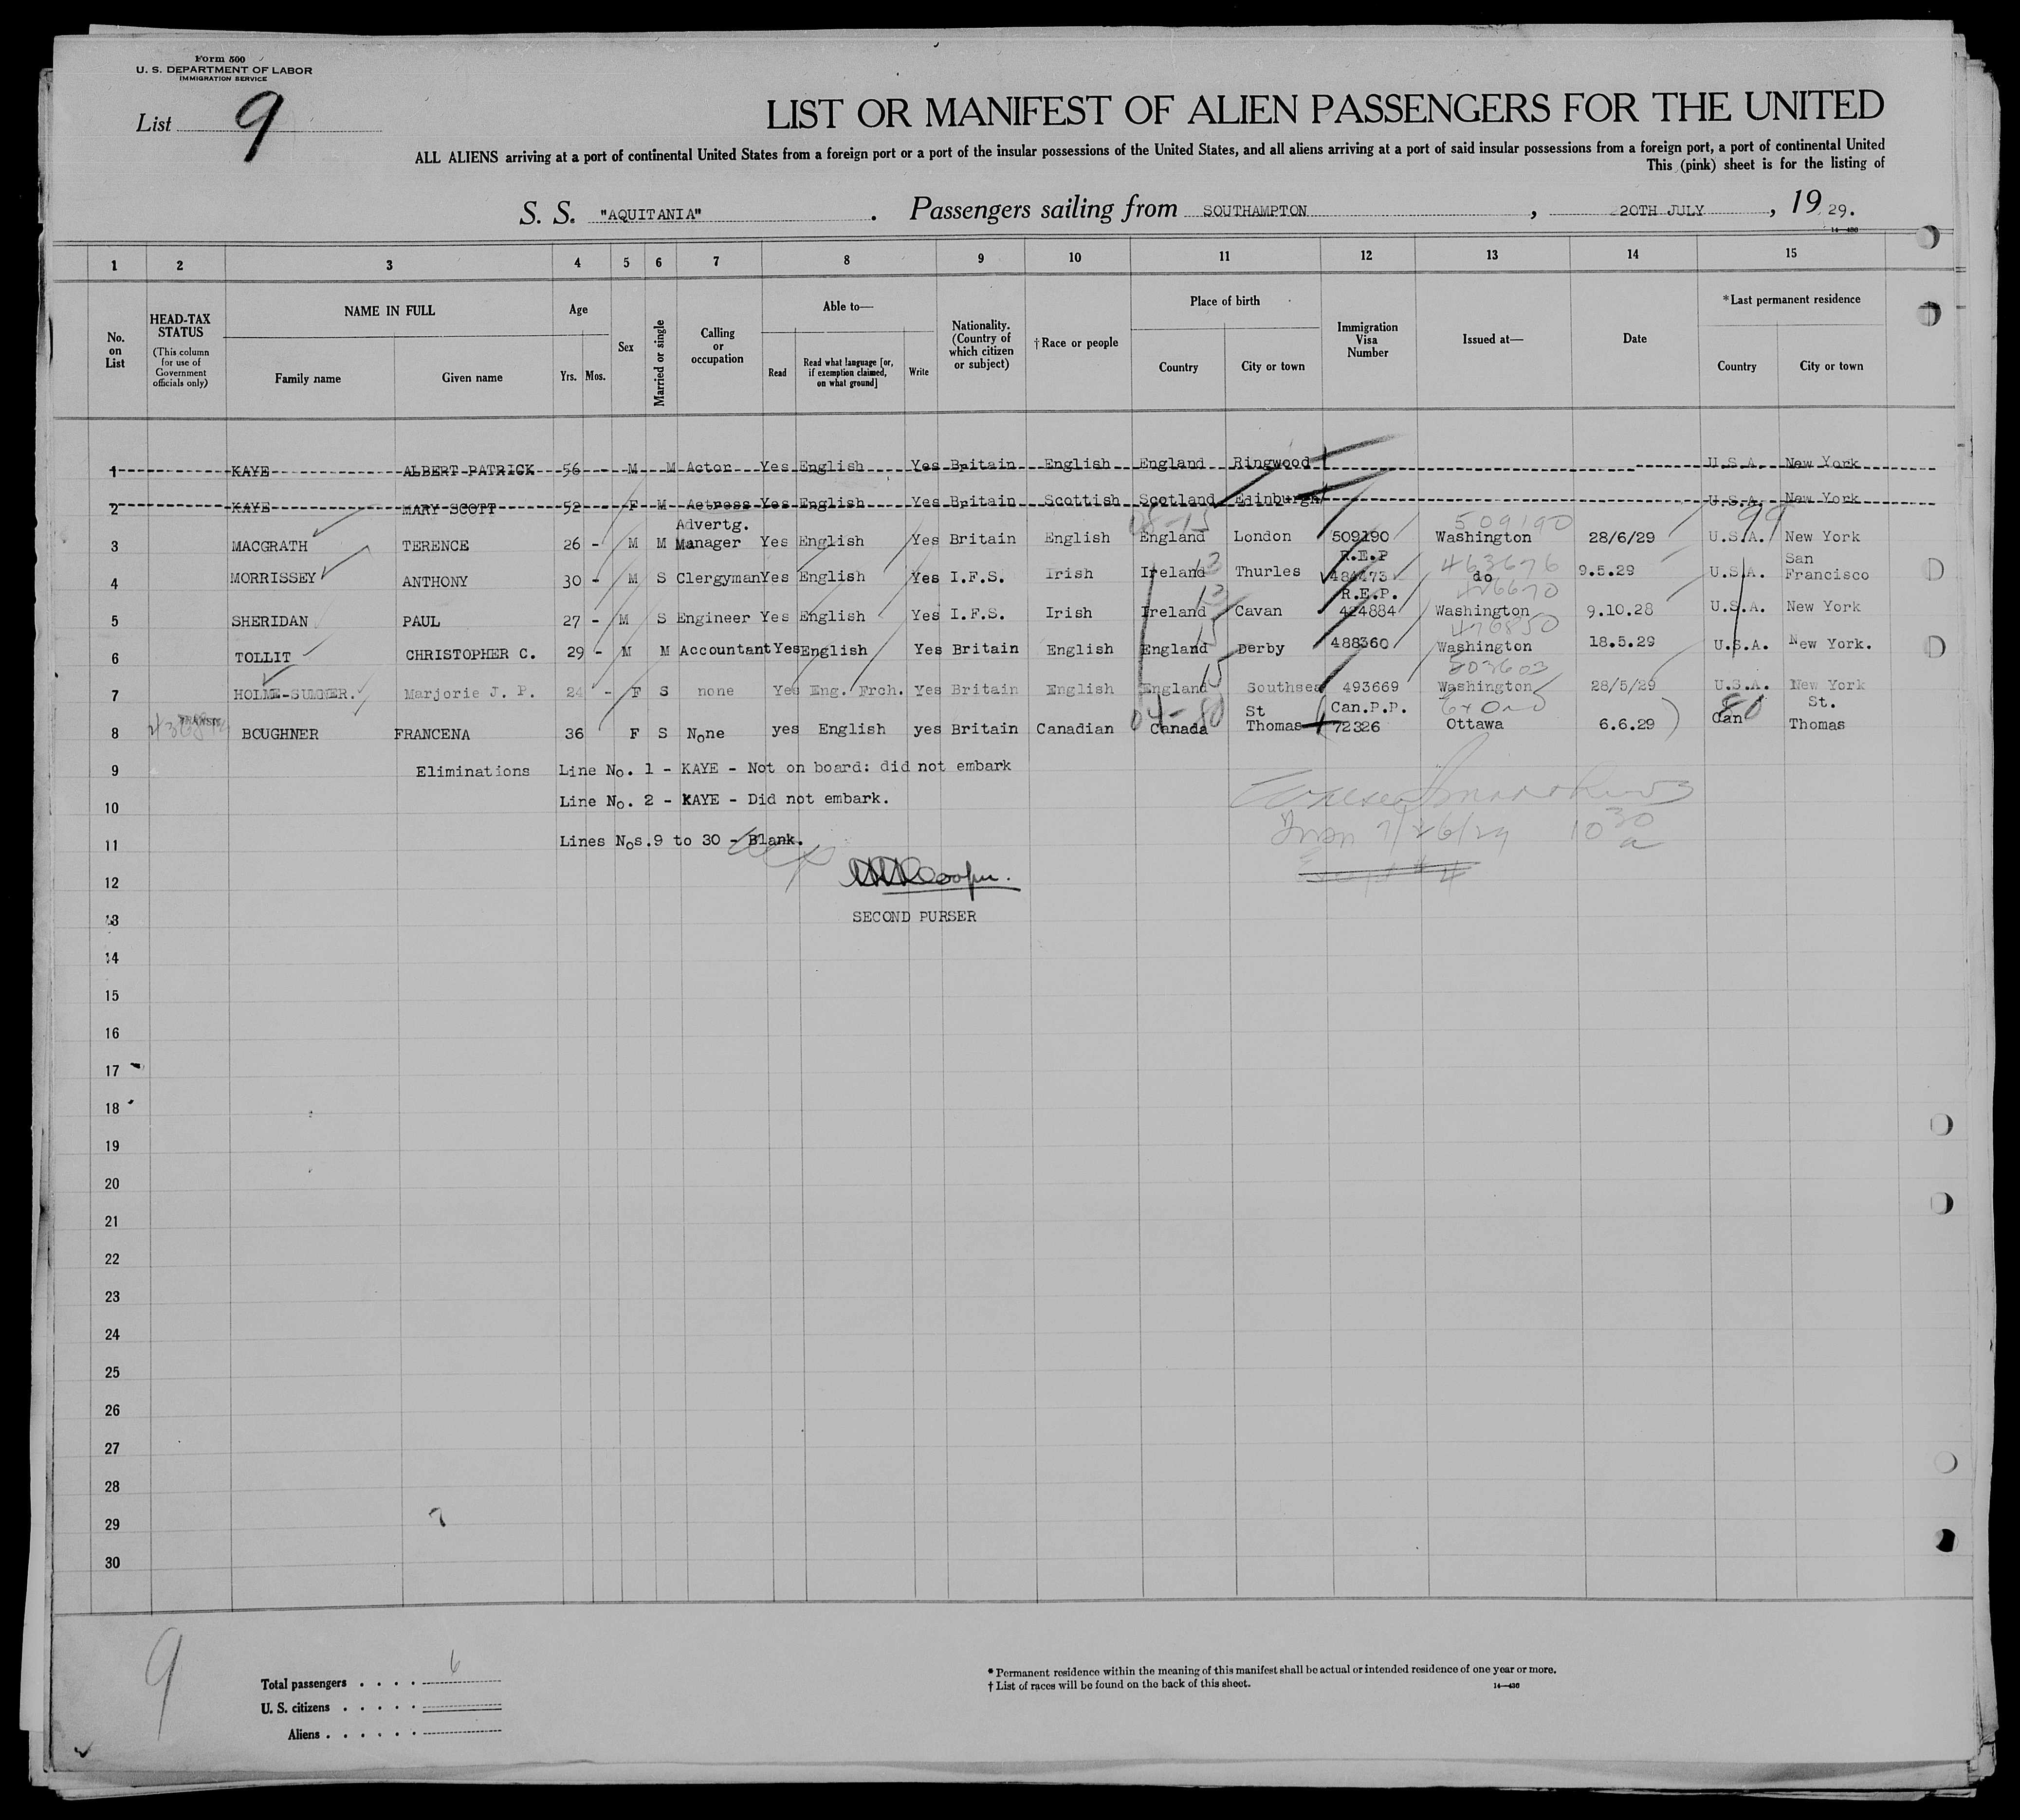 Form 500
U. S. DEPARTMENT OF LABOR
IMMIGRATION SERVICE
List 9
LIST OR MANIFEST OF ALIEN PASSENGERS FOR THE UNITED
ALL ALIENS arriving at a port of continental United States from a foreign port or a port of the insular possessions of the United States, and all aliens arriving at a port of said insular possessions from a foreign port, a port of continental United
This (pink) sheet is for the listing of
S. S. "AQUITANIA". Passengers sailing from SOUTHAMPTON, 20TH JULY, 19 29.
14—430
1 2 3 4 5 6 7 8 9 10 11 12 13 14 15
No. on List
HEAD-TAX STATUS (This column for use of Government officials only)
NAME IN FULL
Family name Given name
Age
Yrs. Mos.
Sex
Married or single
Calling or occupation
Able to—
Read Read what language [or, if exemption claimed, on what ground] Write
Nationality. (Country of which citizen or subject)
†Race or people
Place of birth
Country City or town
Immigration Visa Number
Issued at—
Date
*Last permanent residence
Country City or town
1 KAYE ALBERT PATRICK 56 - M M Actor Yes English Yes Britain English England Ringwood U.S.A. New York
2 KAYE MARY SCOTT 52 F M Actress Yes English Yes Britain Scottish Scotland Edinburgh U.S.A. New York
08-15 509190 99
3 MACGRATH TERENCE 26 - M M Advertg. Manager Yes English Yes Britain English England London 509190 Washington 28/6/29 U.S.A. New York
13 463676
4 MORRISSEY ANTHONY 30 - M S Clergyman Yes English Yes I.F.S. Irish Ireland Thurles R.E.P 484473 do 9.5.29 U.S.A. San Francisco
13 426670
5 SHERIDAN PAUL 27 - M S Engineer Yes English Yes I.F.S. Irish Ireland Cavan R.E.P. 424884 Washington 9.10.28 U.S.A. New York
15 476850
6 TOLLIT CHRISTOPHER C. 29 - M M Accountant Yes English Yes Britain English England Derby 488360 Washington 18.5.29 U.S.A. New York.
15 503603
7 HOLME-SUMNER. Marjorie J. P. 24 - F S none Yes Eng. Frch. Yes Britain English England Southsea 493669 Washington 28/5/29 U.S.A. New York
TRANSIT 04-80 80
8 BOUGHNER FRANCENA 36 F S None yes English yes Britain Canadian Canada St Thomas Can.P.P. 72326 Ottawa 6.6.29 Can St. Thomas
9 Eliminations Line No. 1 - KAYE - Not on board: did not embark
10 Line No. 2 - KAYE - Did not embark.
11 Lines Nos.9 to 30 - Blank.
7/26/29 10 30 a
12 Cooper.
13 SECOND PURSER
14
15
16
17
18
19
20
21
22
23
24
25
26
27
28
29
30
9
Total passengers 6
U. S. citizens
Aliens
* Permanent residence within the meaning of this manifest shall be actual or intended residence of one year or more.
† List of races will be found on the back of this sheet.
14—430